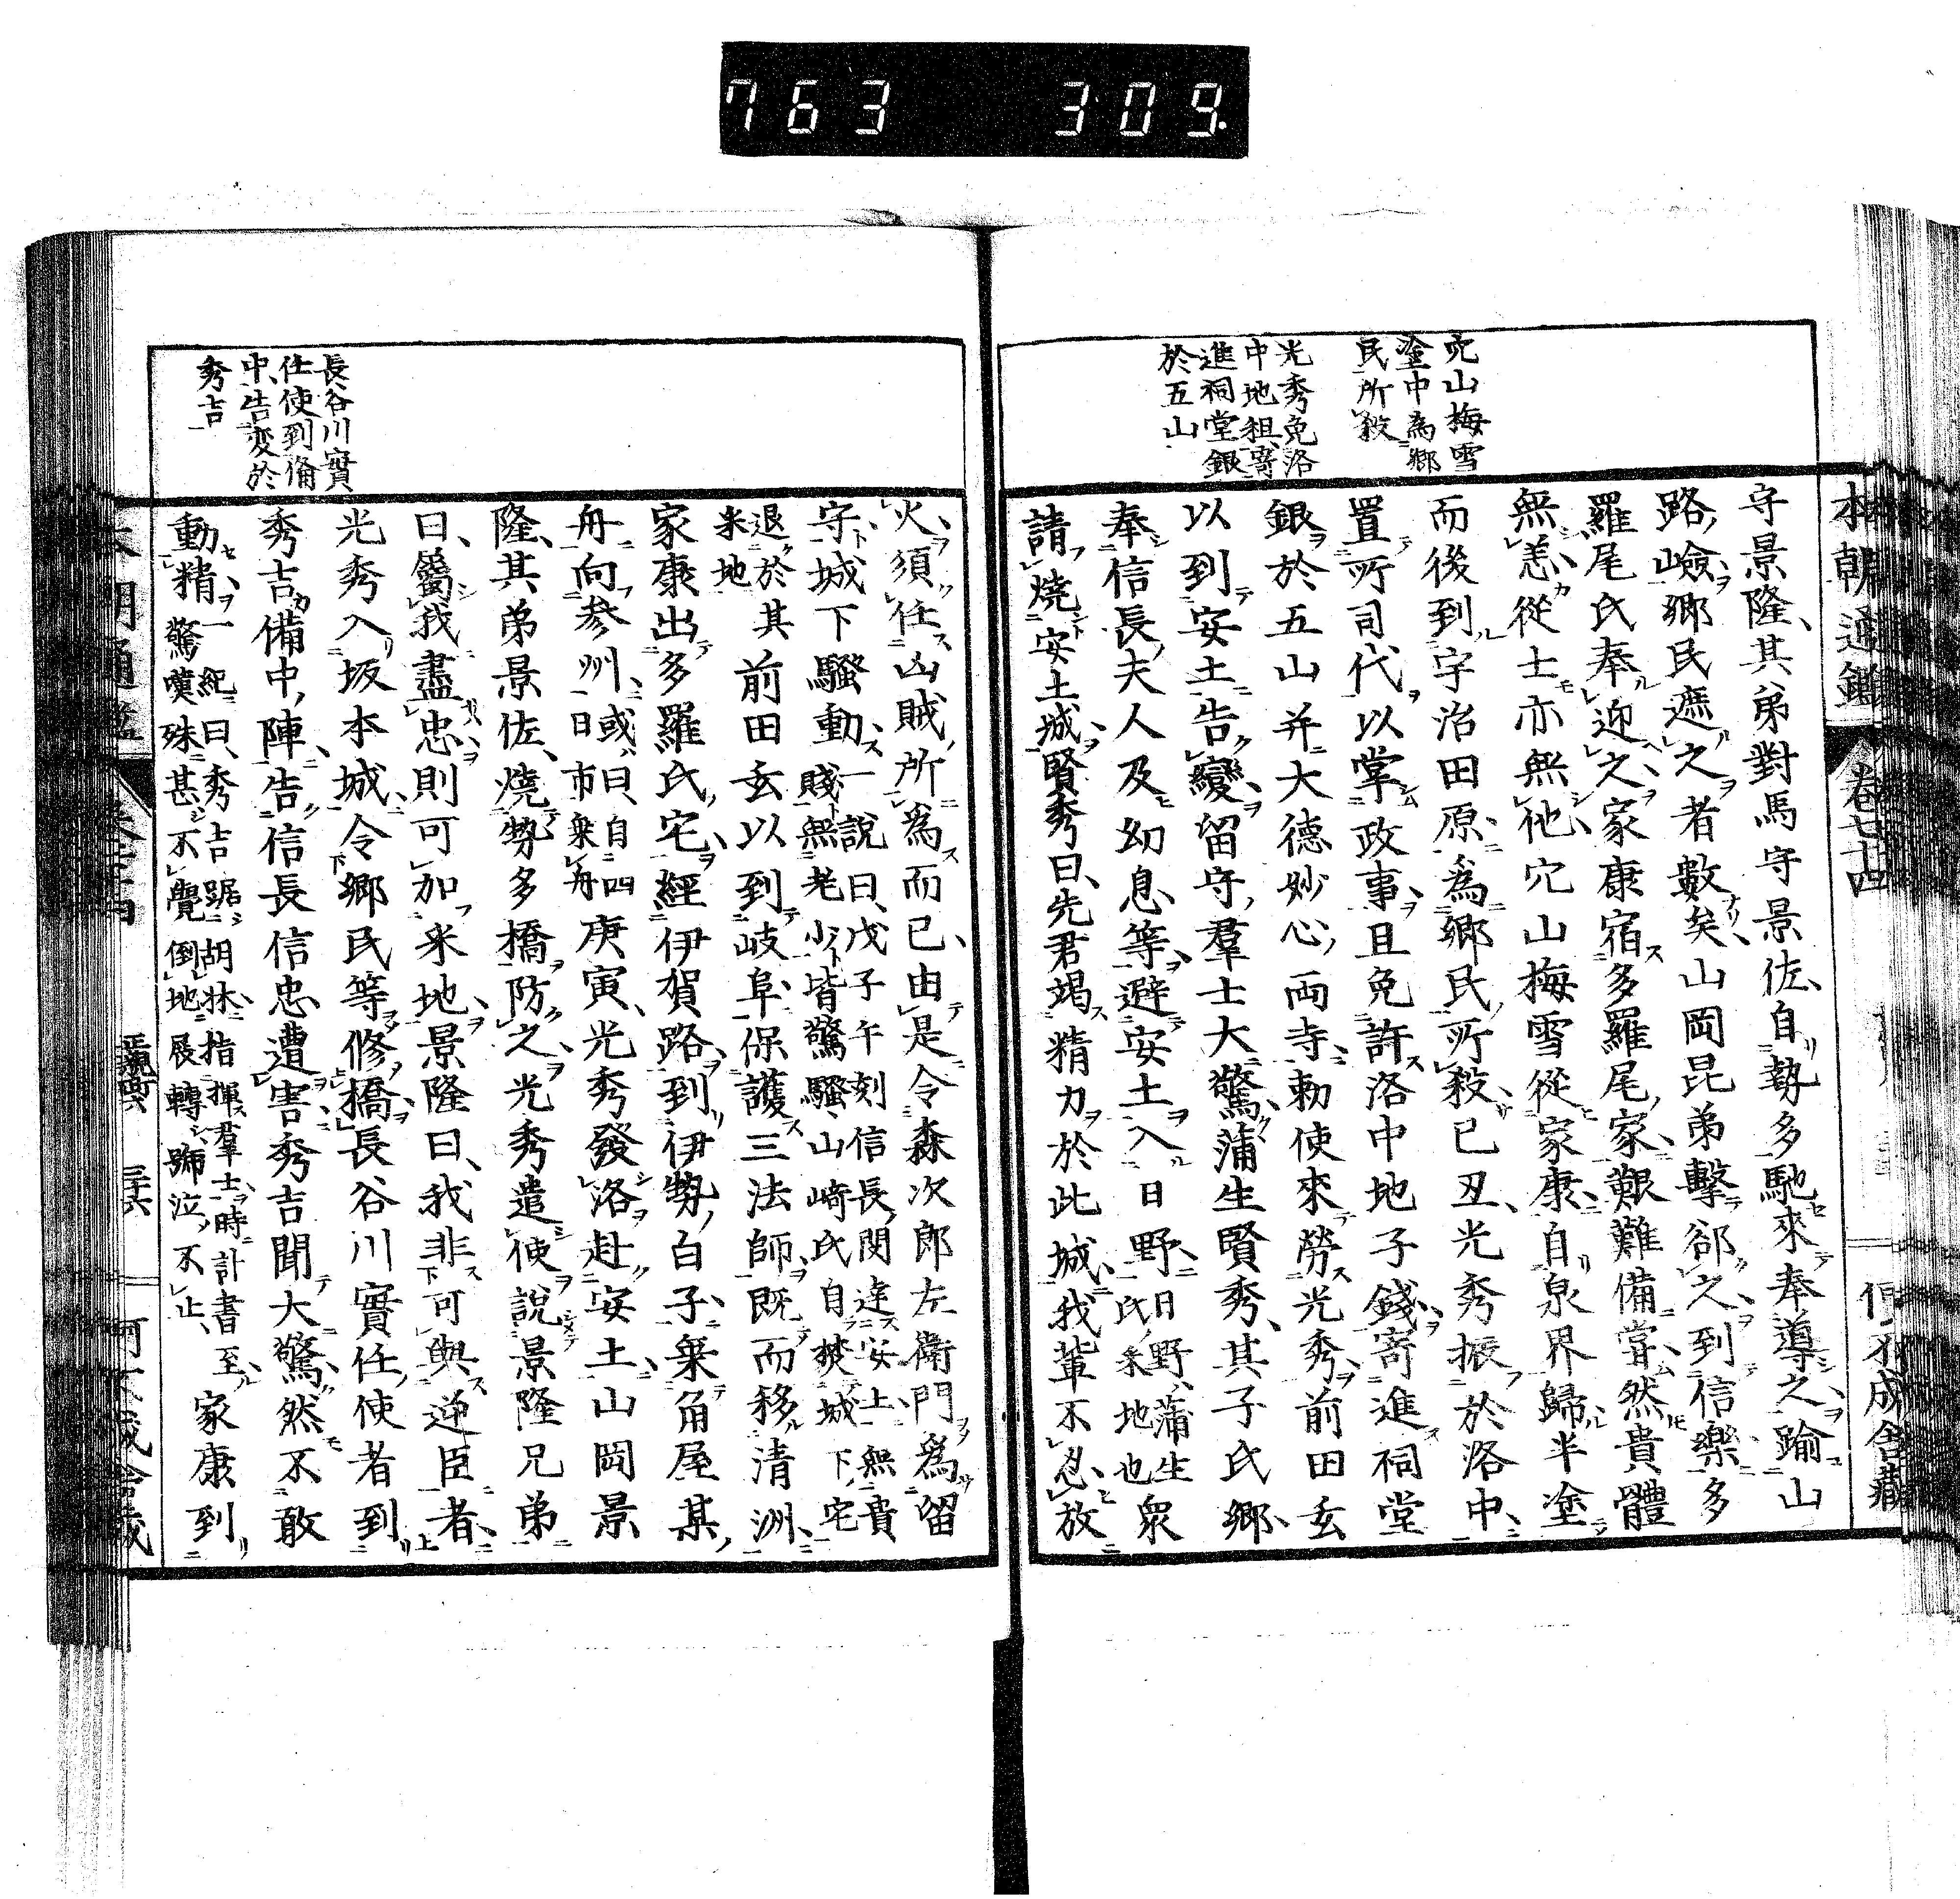 763 309.
本朝通鑑 卷七十四
穴山梅雪
塗中為鄉
民所殺
光秀免洛
中地租寄
進祠堂銀
於五山
守景隆其弟對馬守景佐自勢多馳來奉導之踰山
路嶮鄉民遮之者數矣山岡昆弟擊郤之到信樂多
羅尾氏奉迎之家康宿多羅尾家艱難備甞然貴體
無恙從士亦無他穴山梅雪從家康自泉界歸半塗
而後到宇治田原為鄉民所殺已丑光秀振於洛中
置所司代以掌政事且免許洛中地子錢寄進祠堂
銀於五山并大德妙心兩寺勅使來勞光秀前田玄
以到安土告變留守羣士大驚蒲生賢秀其子氏鄉
奉信長夫人及幼息等避安土入日野日野蒲生氏采地也眾
請燒安土城賢秀曰先君竭精力於此城我輩不忍放
長谷川實
任使到備
中告変於
秀吉
火須任凶賊所為而已由是令森次郎左衛門為留
守城下騷動一說曰戊子午刻信長閔達安土無貴賤無老少皆驚騷山崎氏自焚城下宅
退於其采地前田玄以到岐阜保護三法師既而移清洲
家康出多羅氏宅經伊賀路到伊勢白子乗角屋某
舟向參州或曰自四日市乗舟庚寅光秀發洛赴安土山岡景
隆其弟景佐燒勢多橋防之光秀遣使說景隆兄弟
曰屬我盡忠則可加采地景隆曰我非可與逆臣者
光秀入坂本城令鄉民等修橋長谷川實任使者到
秀吉備中陣告信長信忠遭害秀吉聞大驚然不敢
動精一紀曰秀吉踞胡牀指揮羣士時訃書至驚嘆殊甚不覺倒地展轉號泣不止家康到